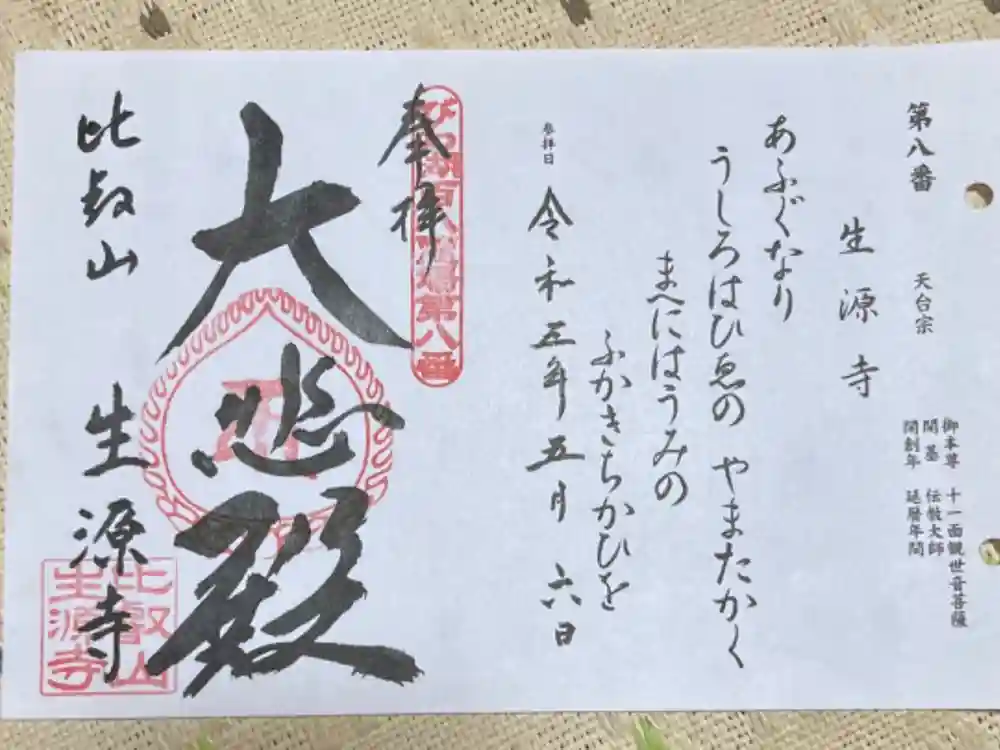 第八番 天台宗
御本尊 十一面観世音菩薩
開基 伝教大師
開創年 延暦年間
生源寺
あふぐなり
うしろはひゑの やまたかく
まへにはうみの
ふかきちかひを
参拝日 令和五年五月六日
奉拝
びわ湖百八霊場第八番
大悲殿
比叡山 生源寺
比叡山
生源寺